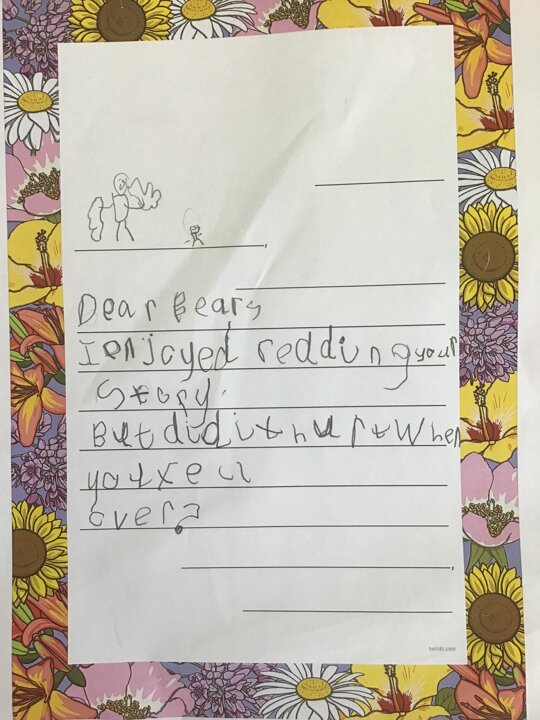 Dear Bears
I enjoyed reddung your
Story.
But did it hurt when
you fell
over?
twinkl.com